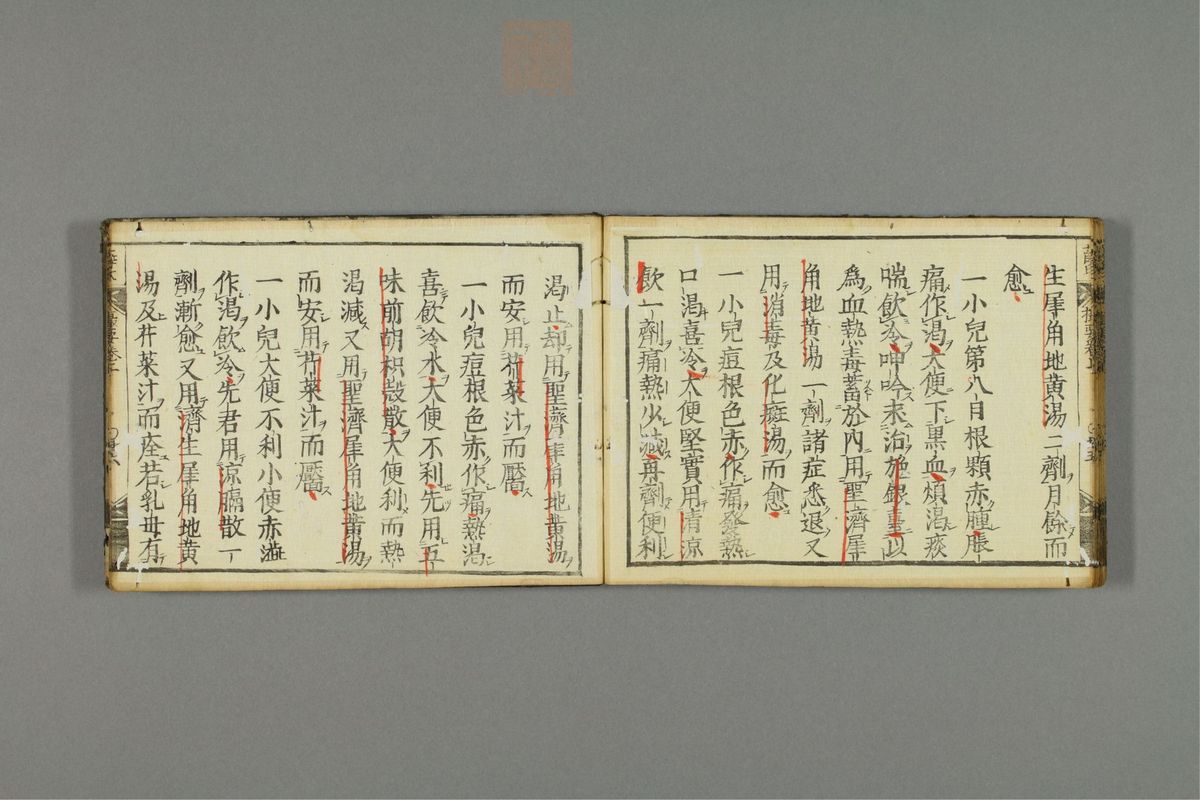 生犀角地黄湯二劑月餘而
愈
一小兒第八日根顆赤腫脹
痛作渴大便下黒血煩渴痰
喘飲冷呻吟求治施銀臺以
為血熱毒蓄於內用聖濟犀
角地黄湯一劑諸症悉退又
用消毒及化斑湯而愈
一小兒痘根色赤作痛發熱
口渴喜冷大便堅實用清涼
飲一劑痛熱少減再劑便利
渴止却用聖濟犀角地黄湯
而安用芥菜汁而靨
一小兒痘根色赤作痛熱渴
喜飲冷水大便不利先用五
味前胡枳殼散大便利而熱
渴減又用聖濟犀角地黄湯
而安用芥菜汁而靨
一小兒大便不利小便赤澁
作渴飲冷先君用涼膈散一
劑漸愈又用濟生犀角地黄
湯及芥菜汁而痊若乳母有